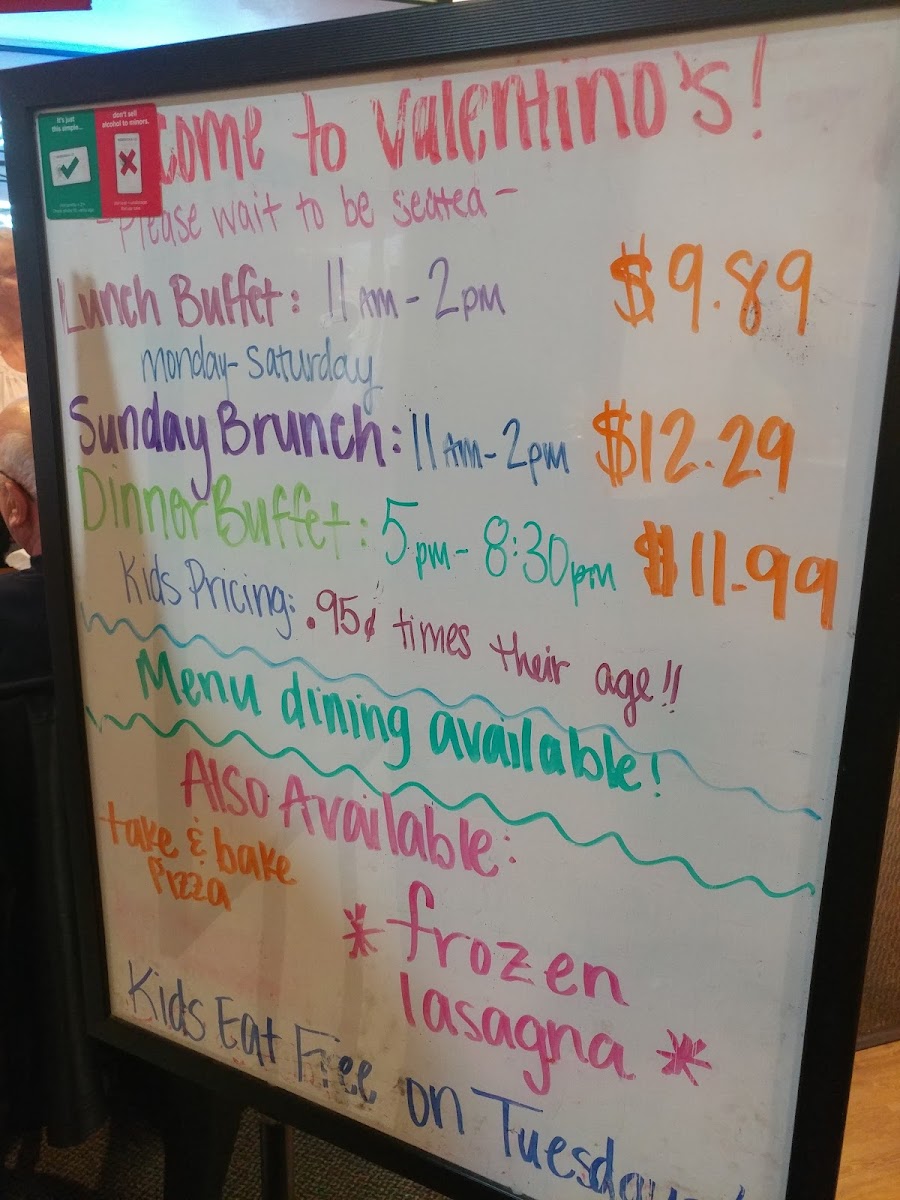 it's just
this simple...
don't sell
alcohol to minors.
come to Valentino's!
- Please wait to be seated -
Lunch Buffet: 11am - 2pm $9.89
Monday - Saturday
Sunday Brunch: 11am - 2pm $12.29
Dinner Buffet: 5pm - 8:30pm $11.99
Kids Pricing: .95¢ times their age!!
Menu dining available!
Also Available:
take & bake
Pizza
* frozen
lasagna *
Kids Eat Free on Tuesday